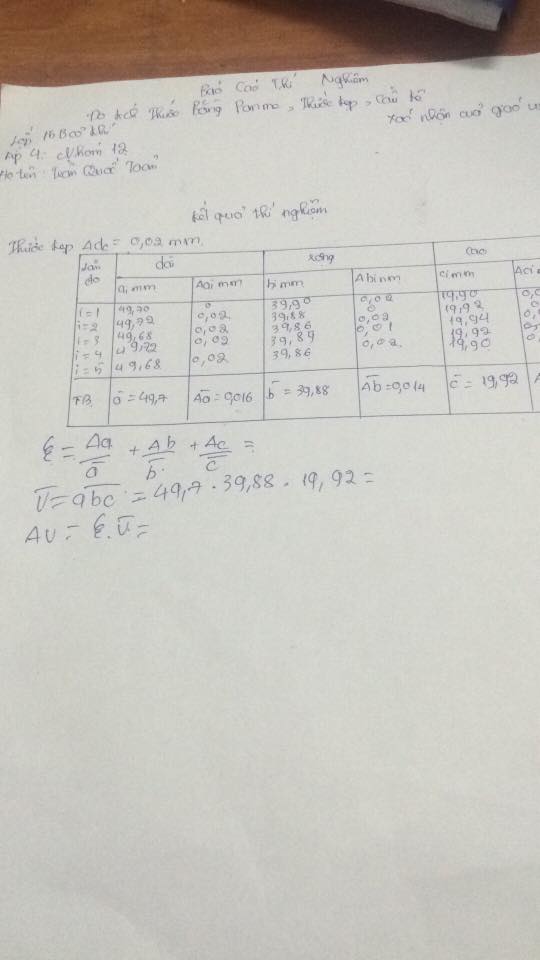 Báo Cáo Thí Nghiệm
Đo kích Thước bằng Panme, Thước kẹp, Cầu kế
Xác nhận của giáo v
Lớp 15B cơ khí
Nhóm 12
Họ tên: Trần Quốc Toàn
kết quả thí nghiệm
Thước kẹp Δdc = 0,02 mm.
Lần đo dài rộng cao
ai mm Δai mm bi mm Δbi mm ci mm Δci m
i = 1 49,70 0 39,90 0,02 19,90 0,0
i = 2 49,72 0,02 39,88 0 19,92
i = 3 49,68 0,02 39,86 0,02 19,94
i = 4 49,72 0,02 39,89 0,01 19,92
i = 5 49,68 0,02 39,86 0,02 19,90
TB. ā = 49,7 Δā = 0,016 b̄ = 39,88 Δb̄ = 0,014 c̄ = 19,92
ε = Δa/ā + Δb/b̄ + Δc/c̄ =
V̄ = abc = 49,7 . 39,88 . 19,92 =
ΔV = ε.V̄ =